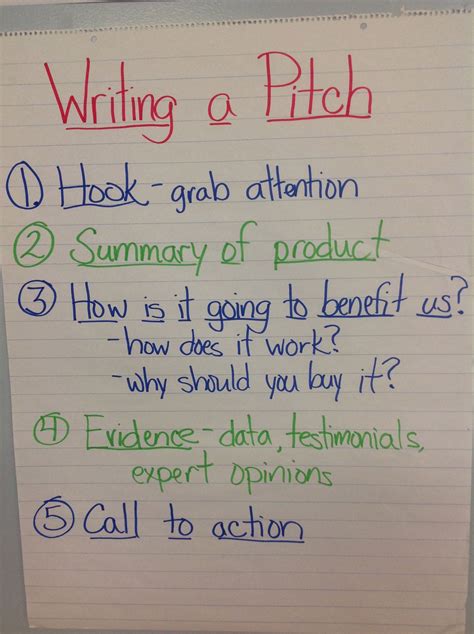 Writing a Pitch
1. Hook - grab attention
2 Summary of product
3 How is it going to benefit us?
- how does it work?
- why should you buy it?
4 Evidence - data, testimonials,
expert opinions
5 Call to action